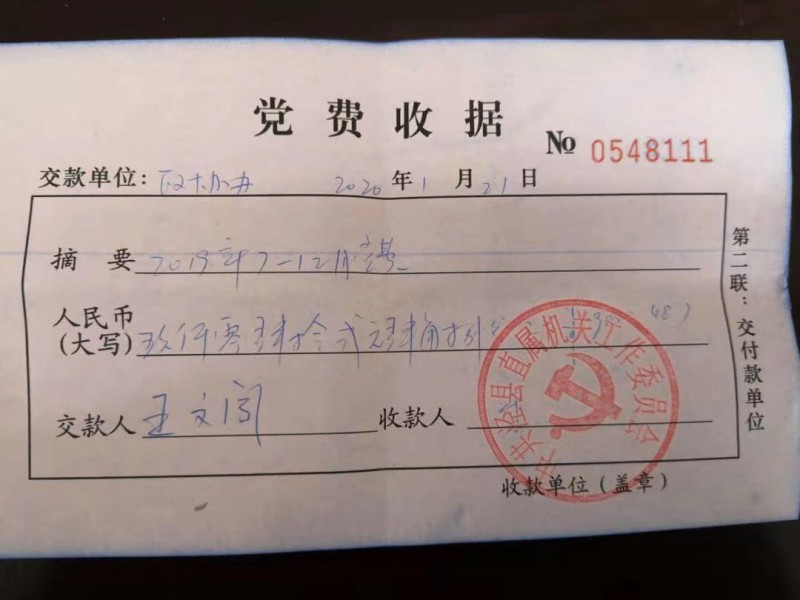 党费收据
№ 0548111
交款单位: 政协办 2020年1月21日
摘要 2019年7-12月党费
人民币
(大写) 玖仟零
交款人 王文 收款人
收款单位(盖章)
第二联:交付款单位
中共泾县直属机关工作委员会